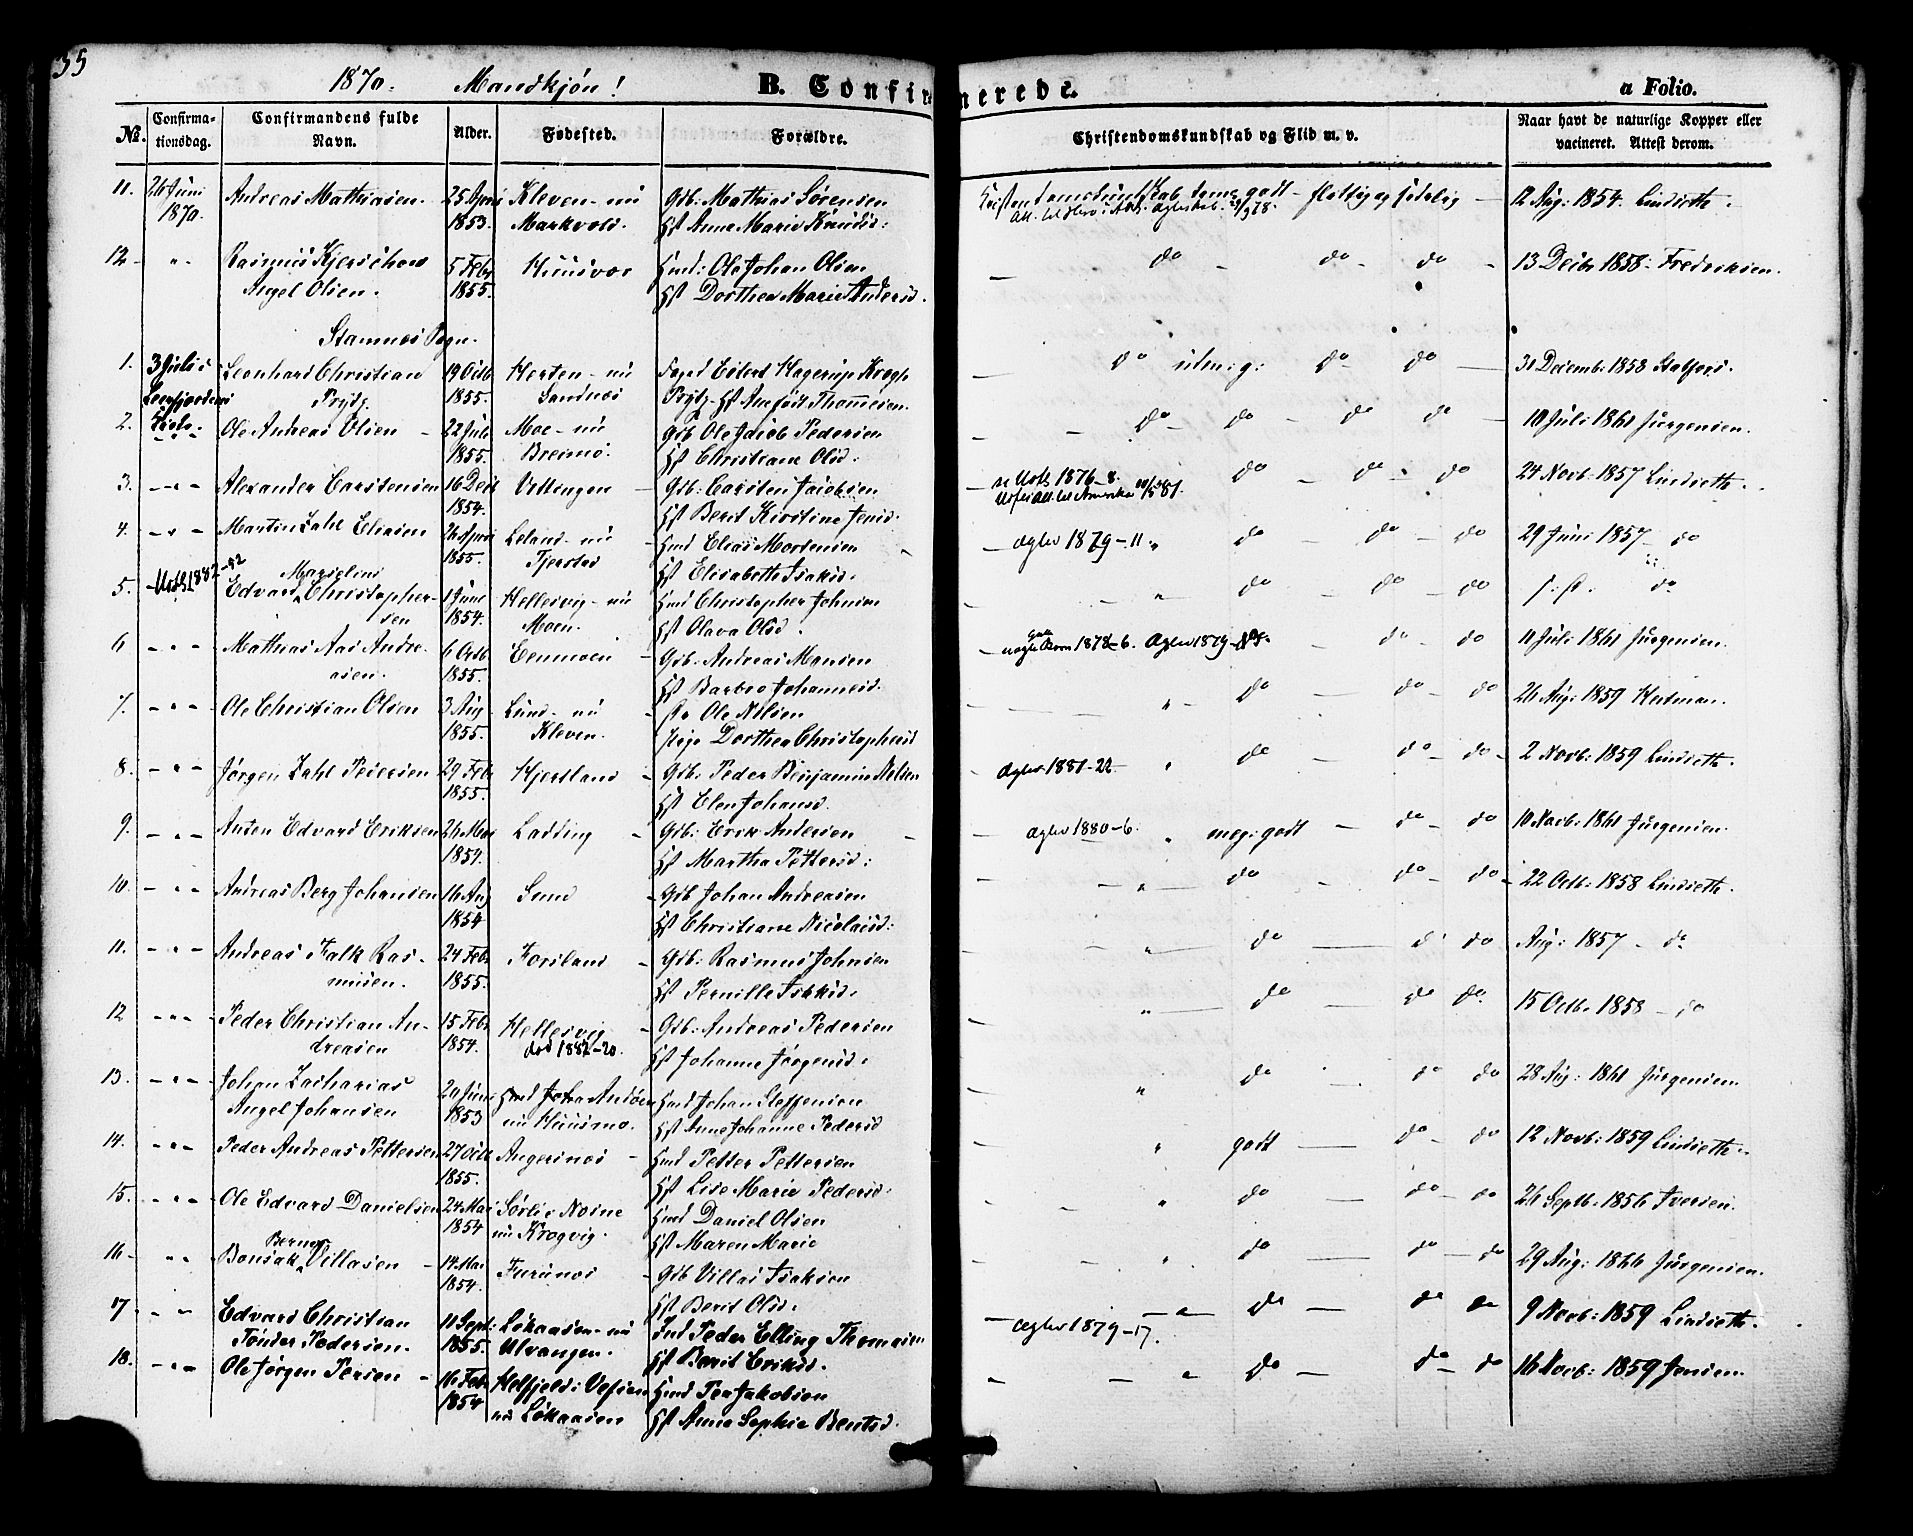 55
1870. Mandkjøn!
B. Confirmerede.
a Folio.
No. Confirmationsdag. Confirmandens fulde Navn. Alder. Fødested. Forældre. Christendomskundskab og Flid m. v. Naar havt de naturlige Kopper eller vacineret. Attest derom.
11. 26 Juni 1870. Andreas Mathiasen. 25 April 1853. Kleven - nu Markvold. Gdb: Mathias Sørensen Hst Anne Marie Knudsd: godt - flittig og sædelig - 12 Aug: 1854. Lindseth.
12. " Rasmus Kjerschow Angel Olsen. 5 Febr 1855. Huusvær Hmd: Ole Johan Olsen Hst Dorthea Marie Andersd. do - do - do - 13 Decbr 1858 Fredriksen.
Stamnes Sogn.
1. 3 Juli i Leonhard Christian Prytz. 19 Octb 1855. Horten - nu Sandnes Eilert Hagerup Krogh Prytz - Hst Ane født Thommesen. do udm: g: do do 31 Decemb: 1858
2. Ole Andreas Olsen - 22 Juli 1855. Moe - nu Breimo. Gdb Ole Jacob Pedersen Hst Christiane Olsd: do - do - do - do 10 Juli 1861 Jürgensen.
3. - " - Alexander Carstensen 16 Decb 1854. Vettingen - Gdb: Carsten Jacobsen Hst Berit Kirstine Jensd. 1876-8. Udfl. Att. til Amerika do - do - do 24 Novb: 1857 Lindseth.
4. - " - Martin Zahl Eliasen 26 April 1855. Leland - nu Tjersted Hmd Elias Mortensen Hst Elisabeth Isaksd. Ægtev 1879-11. " do - do - do 29 Juni 1857 - do
5. 1882-92 Edvard Marselius Christophersen 1 Juni 1854. Hellesvig - nu Moen. Hmd Christopher Johnsen Hst Olava Olsd. - " do - do - do do
6 - " - Mathias Aas Andreasen. 6 Octb 1855. Eenmoen - Gdb. Andreas Monsen Hst Barbro Johannesd. 1878-6. Ægtev 1879 do - do 11 Juli 1861 Jürgensen.
7. - " - Ole Christian Olsen 3 Aug 1855. Lund - nu Kleven. Ole Nilsen Pige Dorthea Christophersd " - do - do - do 26 Aug: 1859
8. - " - Jørgen Zahl Pedersen 29 Febr 1855. Hjertland - Gdb: Peder Benjamin Nilsen Hst Elen Johansd. Ægtev 1881-22 " do do - do - 2 Novb: 1859 Lindseth.
9. - " - Anton Edvard Eriksen 26 Mai 1854. Ladding - Gdb: Erik Andersen Hst Martha Pettersd: Ægtev 1880-6. " meg: godt - do - do 10 Novb: 1861 Jürgensen.
10. - " - Andreas Berg Johansen 16 Aug 1854 Sund - Gdb Johan Andreasen Hst Christiane Nicolaisd: - " do - do - do - 22 Octb: 1858 Lindseth.
11. - " - Andreas Falk Rasmussen. 24 Febr 1855. Forsland - Gdb: Rasmus Johnsen Hst Pernille Isaksd. " do - do do Aug: 1857 - do
12 - " - Peder Christian Andreasen 15 Febr 1854. Hellesvig død 1882-20. Gdb: Andreas Pedersen Hst Johanne Jørgensd. " do - do do 15 Octb. 1858 - do
13. - " - Johan Zacharias Angel Johansen 20 Juni 1853 nu Huusmo. Hmd Johan Steffensen Hst Anne Johanne Pedersd " do - do do 28 Aug: 1861 Jürgensen.
14. - " - Peder Andreas Pettersen 27 Octb 1855. Angersnes - Hmd Petter Pettersen Hst Lise Marie Pedersd. " godt - do - do 12 Novb: 1859 Lindseth.
15. - " - Ole Edvard Danielsen 24 Mai 1854 nu Krogvig. Hmd Daniel Olsen Hst Maren Marie " do - do - do 26 Septb: 1856 Iversen.
16 - " " Bonsak Berner Villasen - 14 Mai 1854. Furunes - Gdb Villas Isaksen Hst Berit Olsd. - " do - do - do 29 Aug: 1866 Jürgensen.
17 - " - Edvard Christian Tønder Pedersen. 11 Sept: 1855. Løkaasen - nu Ulvangen. Ind Peder Elling Thomasen Hst Berit Eriksd. Ægtev 1879-17. - " do - do do 9 Novb: 1859 Lindseth.
18. - " - Ole Jørgen Persen - 16 Febr 1854 Helfjeld i Vefsen nu Løkaasen Hmd Per Jakobsen Hst Anne Sophie Bentsd. - " do - do - do 16 Novb: 1859 Jensen.